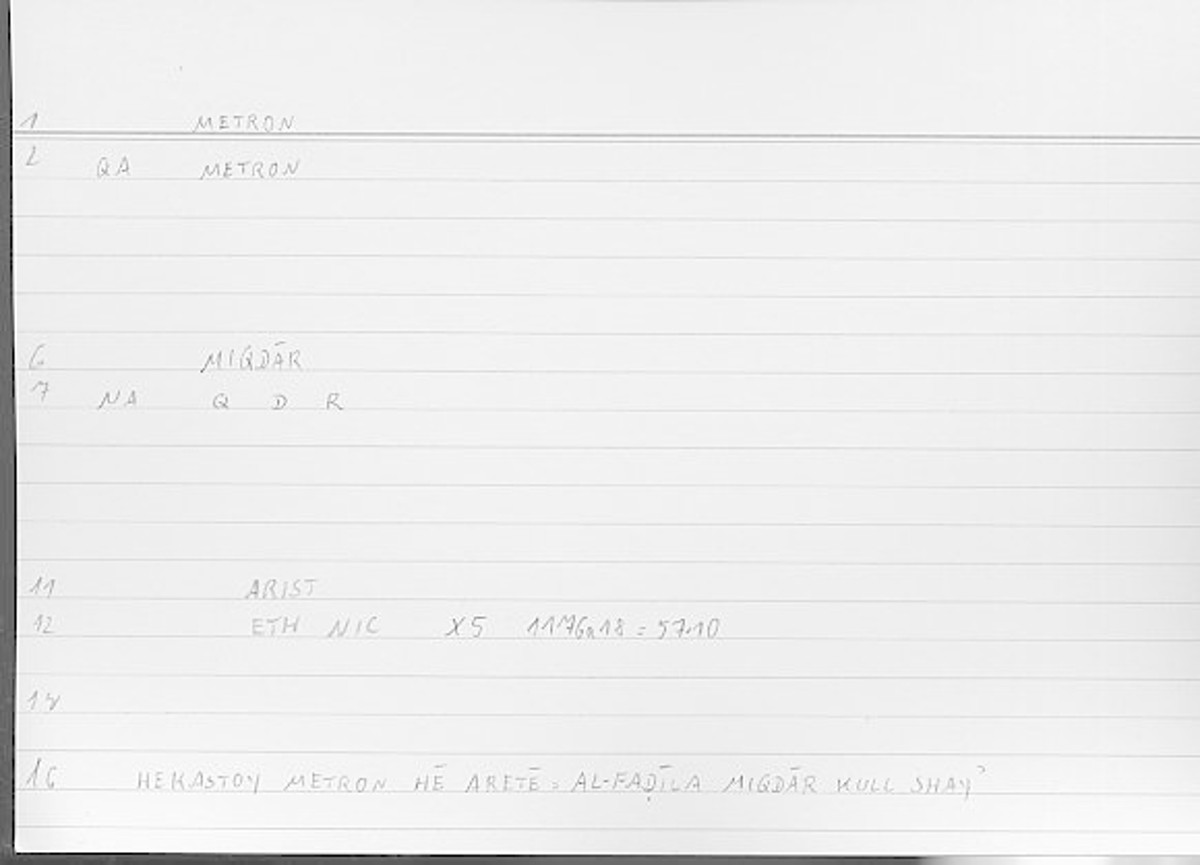 1 METRON
2 QA METRON
6 MIQDĀR
7 NA Q D R
11 ARIST
12 ETH NIC X5 1176a18 = 57.10
14
16 HEKASTOY METRON HĒ ARETĒ = AL-FAḌĪLA MIQDĀR KULL SHAYʾ